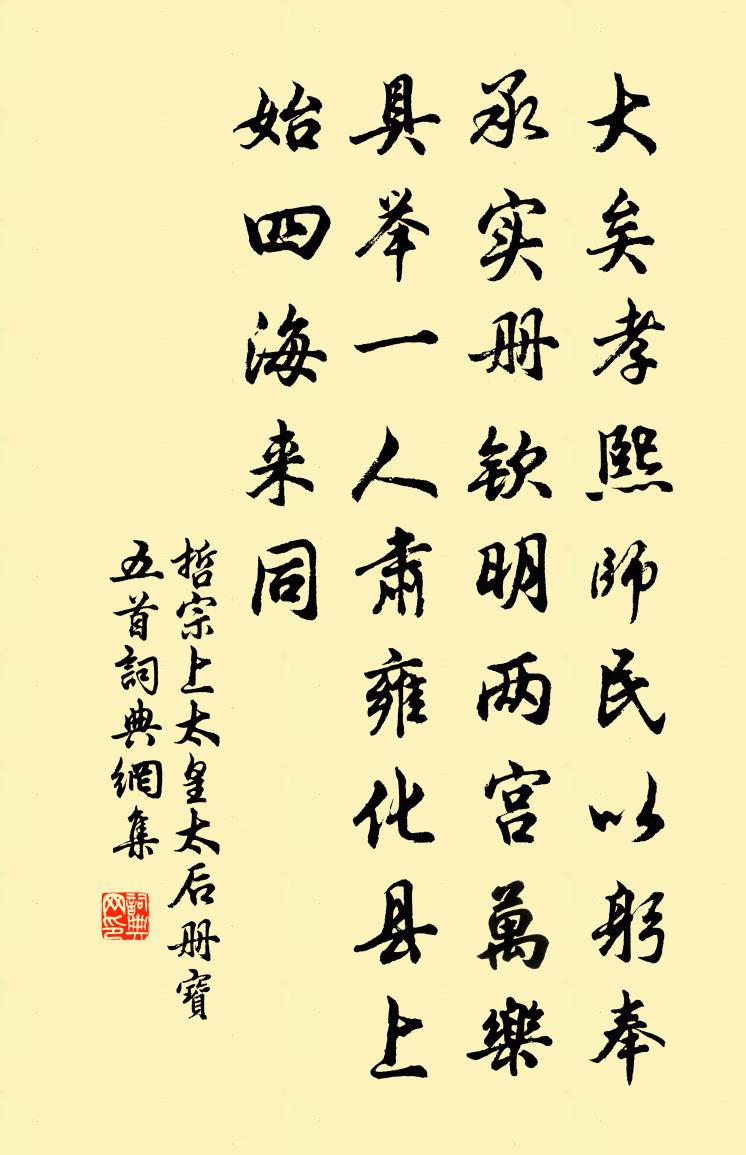 大矣孝熙师民以躬奉
承实册钦明两宫萬樂
具举一人肃雍化县上
始四海来同
哲宗上太皇太后册寶
五首詞典網集
詞典网印